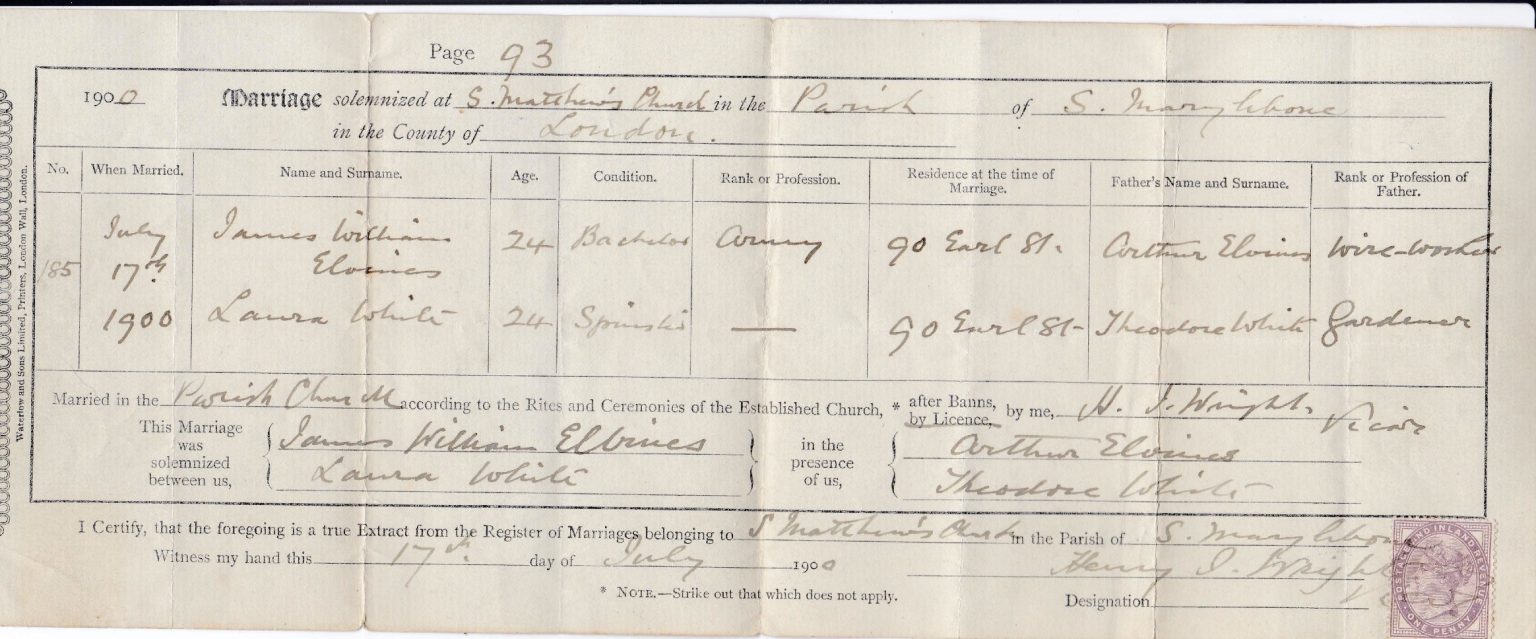 Page 93
1900 Marriage solemnized at S. Matthew's Church in the Parish of S. Marylebone
in the County of London.
No. When Married. Name and Surname. Age. Condition. Rank or Profession. Residence at the time of Marriage. Father's Name and Surname. Rank or Profession of Father.
185 July 17th 1900
James William Elvines 24 Bachelor Army 90 Earl St. Arthur Elvines Wire-worker
Laura White 24 Spinster — 90 Earl St- Theodore White Gardener
Married in the Parish Church according to the Rites and Ceremonies of the Established Church, * after Banns, by Licence, by me, H. J. Wright, Vicar
This Marriage was solemnized between us,
James William Elvines
Laura White
in the presence of us,
Arthur Elvines
Theodore White
I Certify, that the foregoing is a true Extract from the Register of Marriages belonging to S Matthew's Church in the Parish of S. Marylebone
Witness my hand this 17th day of July 1900 Henry J. Wright
* NOTE.—Strike out that which does not apply.
Designation
Waterlow and Sons Limited, Printers, London Wall, London.
POSTAGE AND INLAND REVENUE
ONE PENNY